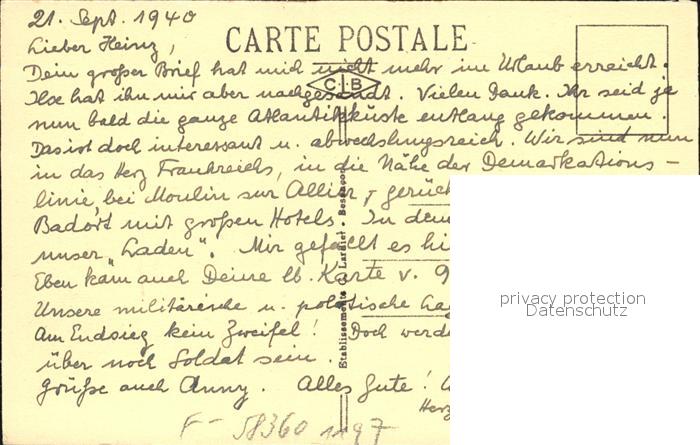 21. Sept. 1940
CARTE POSTALE
Lieber Heinz,
Dein großer Brief hat mich nicht mehr im Urlaub erreicht.
Ilse hat ihn mir aber nachgesandt. Vielen Dank. Ihr seid ja
C B
nun bald die ganze Atlantikküste entlang gekommen.
Das ist doch interessant u. abwechslungsreich. Wir sind nun
in das Herz Frankreichs, in die Nähe der Demarkations-
linie, bei Moulin sur Allier, gerück
Badort mit großen Hotels. In dem
unser "Laden". Mir gefällt es hi
Eben kam auch Deine lb. Karte v. 9
Unsere militärische u. politische Lag
Am Endsieg kein Zweifel! Doch werde
über noch Soldat sein.
Grüße auch Anny. Alles Gute!
Herz
Etablissements C. Lardier - Besançon
privacy protection
Datenschutz
F- 58360 1197